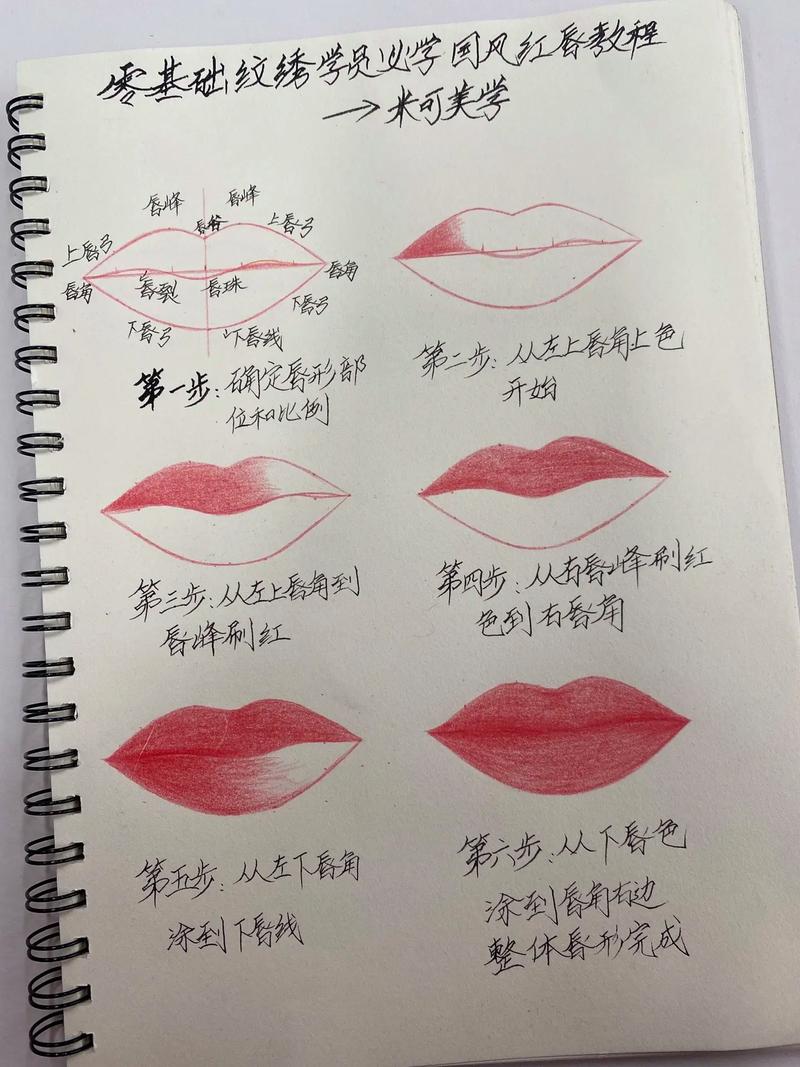 零基础纹绣学员必学国风红唇教程
→米可美学
唇峰 唇峰
唇谷
上唇弓 上唇弓
唇角 唇裂 唇珠 唇角
下唇弓 下唇弓
下唇线
第一步：确定唇形部
位和比例
第二步：从左上唇角上色
开始
第三步：从左上唇角到
唇峰刷红
第四步：从右唇峰刷红
色到右唇角
第五步：从左下唇角
涂到下唇线
第六步：从下唇色
涂到唇角右边
整体唇形完成